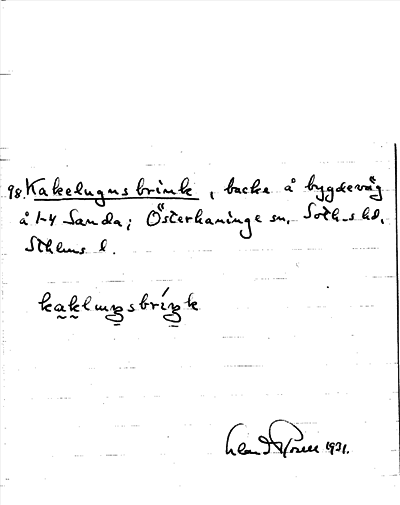 98. Kakelugnsbrink, backe å bygdeväg
å 1-4 Sanda; Österhaninge sn. Soth-s hd.
Sthlms l.
kakluŋsbríŋk
1931.